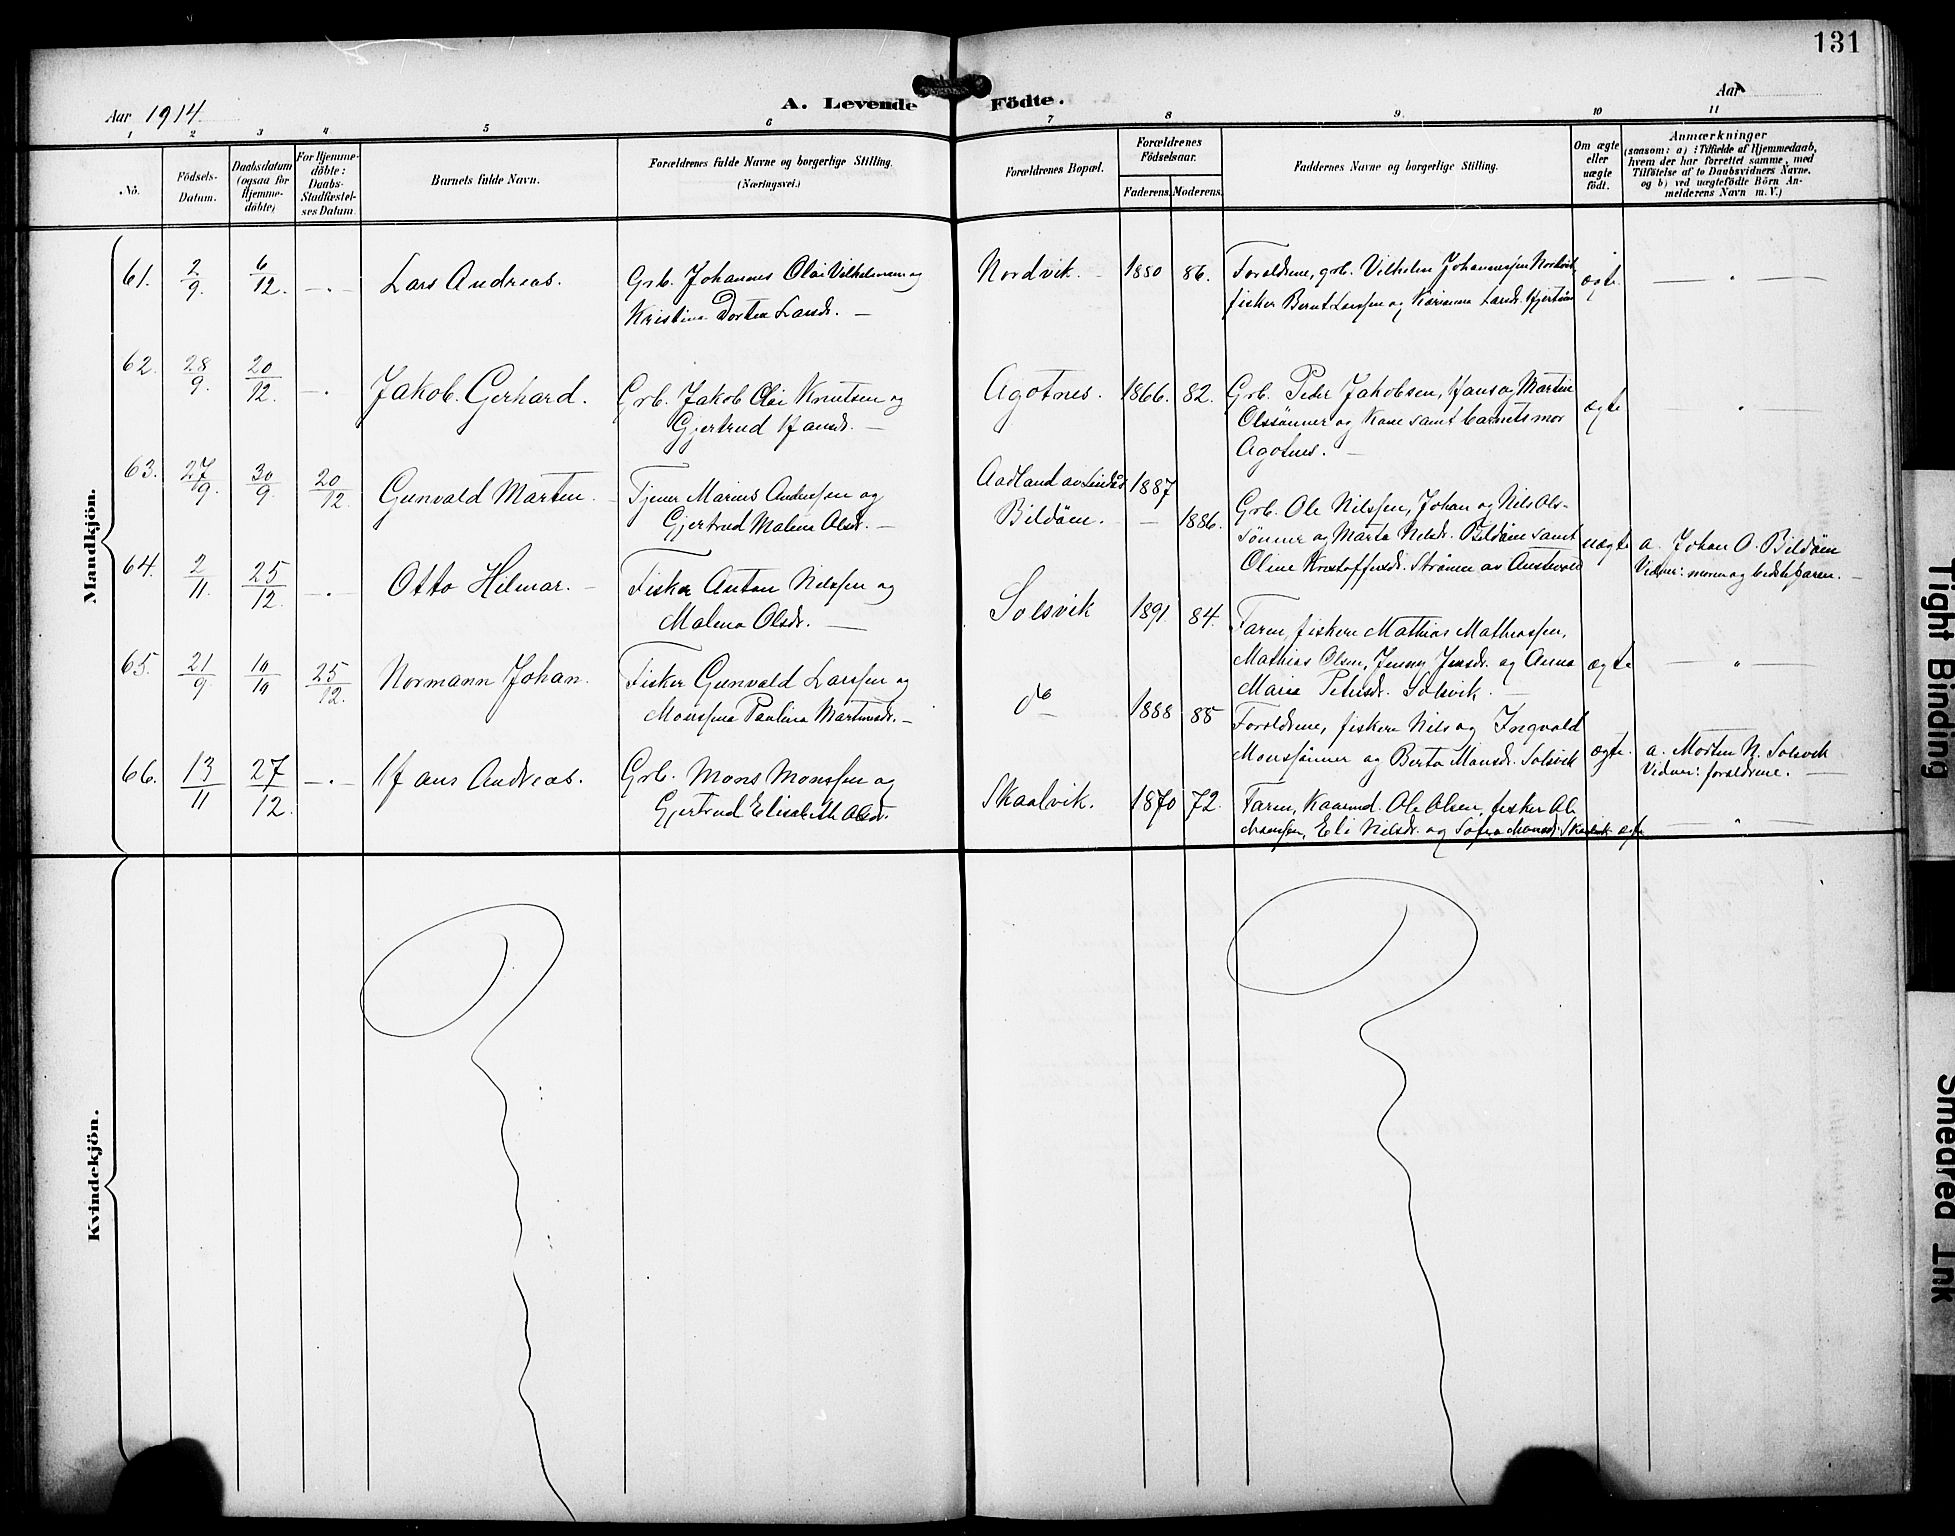 131
Aar 1914
A. Levende Födte.
Aar
1 2 3 4 5 6 7 8 9. 10 11
No.
Födsels-Datum.
Daabsdatum (ogsaa for Hjemme-döbte)
For Hjemme-döbte: Daabs-Stadfæstel-ses Datum
Barnets fulde Navn.
Forældrenes fulde Navne og borgerlige Stilling.
(Næringsvei.)
Forældrenes Bopæl.
Forældrenes Födselsaar.
Faderens. Moderens.
Faddernes Navne og borgerlige Stilling.
Om ægte eller uægte födt.
Anmærkninger
(saasom: a) : Tilfælde af Hjemmedaab,
hvem der har forrettet samme, med
Tilföielse af to Daabsvidners Navne,
og b) ved uægtefödte Börn An-
melderens Navn m. V.)
Mandkjön.
61. 2/9. 6/12. —"— Lars Andreas.
Grb. Johannes Olai Vilhelmsen og
Kristina Dortea Larsdr. —
Nordvik. 1880 86.
Foreldrene, grb. Vilhelm Johannessen Nordvik,
fisker Bernt Larssen og Karianna Larsdr.
ægte — " —
62. 28/9. 20/12. —"— Jakob Gerhard.
Grb. Jakob Olai Knutsen og
Gjertrud Hansdr. —
Agotnes. 1866. 82.
Grb. Peder Jakobsen, Hans og Martin
Olssønner og Kone samt barnets mor
Agotnes. —
ægte — " —
63. 27/9. 30/9 20/12. Gunvald Martin. —
Tjener Marius Anderssen og
Gjertrud Malena Olsdr. —
Aadland av Lindås 1887
Bildøen. — 1886.
Grb. Ole Nilssen, Johan og Nils Ols-
sønner og Marta Nilsdr. Bildøen samt
Oline Kristoffersdr. Strømen av Austevold
uægte
a. Johan O. Bildøen
Vidner: moren og bedstefaren. —
64. 2/11. 25/12. —"— Otto Hilmar. —
Fisker Anton Nilssen og
Malena Olsdr. —
Solsvik 1891 84.
Faren, fiskere Mathias Mathiassen,
Mathias Olsen, Jenny Jensdr. og Anna
Maria Petersdr. Solsvik. —
ægte — " —
65. 21/9 10/10 25/12. Normann Johan.
Fisker Gunvald Larssen og
Monssina Paulina Martinsdr. —
do 1888 85
Foreldrene, fiskere Nils og Ingvald
Monssønner og Berta Monsdr. Solsvik
ægte.
a. Morten N. Solsvik
Vidner: foreldrene. —
66. 13/11 27/12. —"— Hans Andreas.
Grb. Mons Monssen og
Gjertrud Elisabeth Olsdr.
Skaalvik. 1870 72.
Faren, Kaarmd. Ole Olsen, fisker Ole
Monssen, Eli Nilsdr. og Sofia Monsdr. Skaalvik
ægte — " —
Kvindekjön.
Tight Binding
Smeared Ink